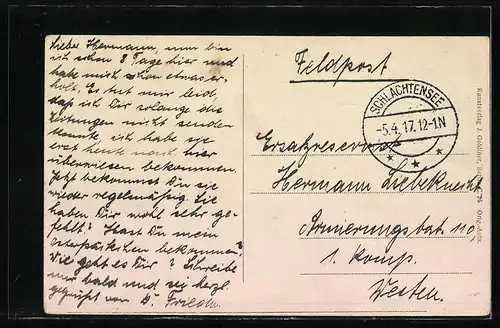 Lieber Hermann, nun bin
ich schon 8 Tage hier und
habe mich schon etwas er-
holt. Es tut mir leid,
daß ich Dir solange die
Zeitungen nicht senden
konnte ich habe sie
erst heute nach hier
überwiesen bekommen.
Jetzt bekommst Du sie
wieder regelmäßig. Sie
haben Dir wohl sehr ge-
fehlt? Hast Du mein
Osterpäckchen bekommen?
Wie geht es Dir? Schreibe
nur bald und sei herzl.
gegrüßt von D. Friedr.
Feldpost
SCHLACHTENSEE
-5.4.17.12-1N
Ersatzreservist
Hermann Liebeknecht
Armierungsbat. 110,
1. Komp.
Westen.
Kunstverlag J. Goldiner, Orig.-Aufn.